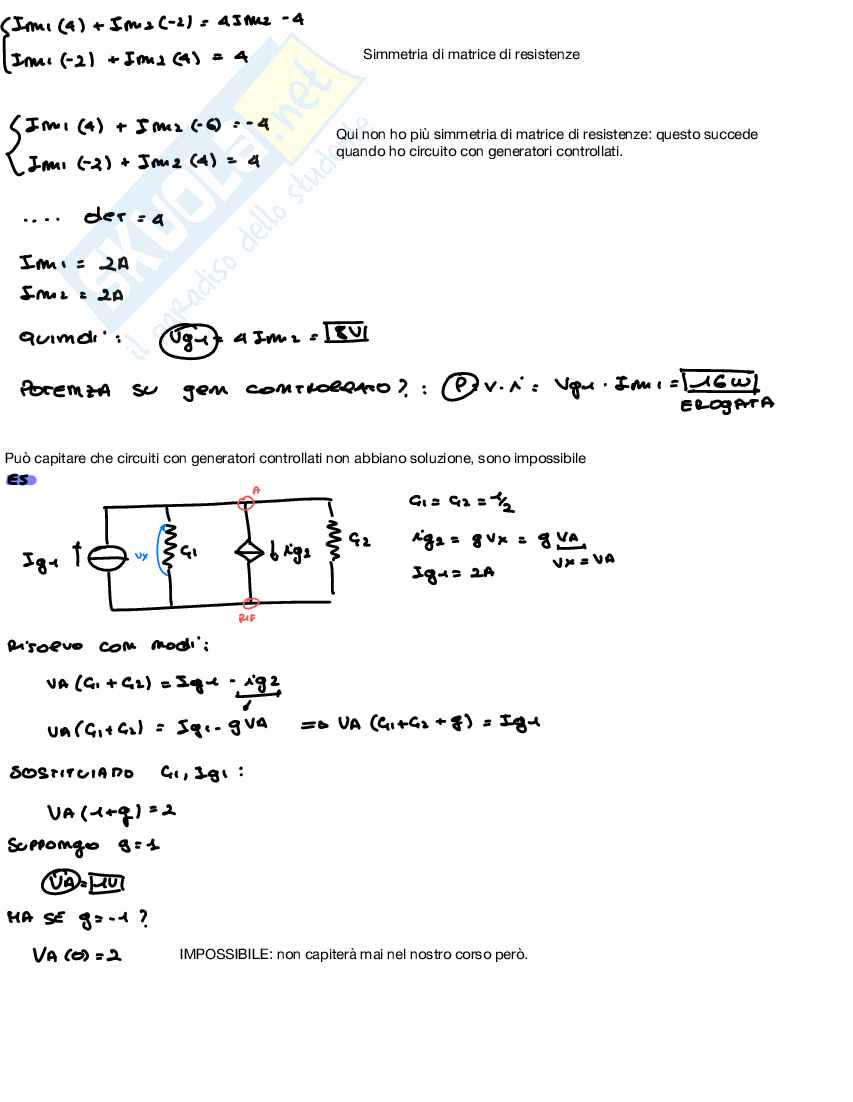 Im1 (4) + Im2 (-2) = 4Im2 -4
Im1 (-2) + Im2 (4) = 4
Simmetria di matrice di resistenze
Im1 (4) + Im2 (-6) = -4
Im1 (-2) + Im2 (4) = 4
Qui non ho più simmetria di matrice di resistenze: questo succede
quando ho circuito con generatori controllati.
.... det = 4
Im1 = 2A
Im2 = 2A
Quindi: Vg1 = 4 Im2 = 8V
POTENZA SU gen CONTROLLATO? : P = V·i = Vg1 · Im1 = 16W
EROGATA
SKUOLA.net
il paradiso dello studente
Può capitare che circuiti con generatori controllati non abbiano soluzione, sono impossibile
ES
A
Ig1
Vx
G1
ig2
G2
RIF
G1 = G2 = 1/2
ig2 = g Vx = g VA
Vx = VA
Ig1 = 2A
Risolvo con nodi:
VA (G1 + G2) = Ig1 - ig2
VA (G1+G2) = Ig1 - gVA => VA (G1+G2 + g) = Ig1
SOSTITUIAMO G1, Ig1 :
VA (1+g) = 2
Suppongo g=1
VA = 1V
MA SE g=-1 ?
VA (0) = 2
IMPOSSIBILE: non capiterà mai nel nostro corso però.